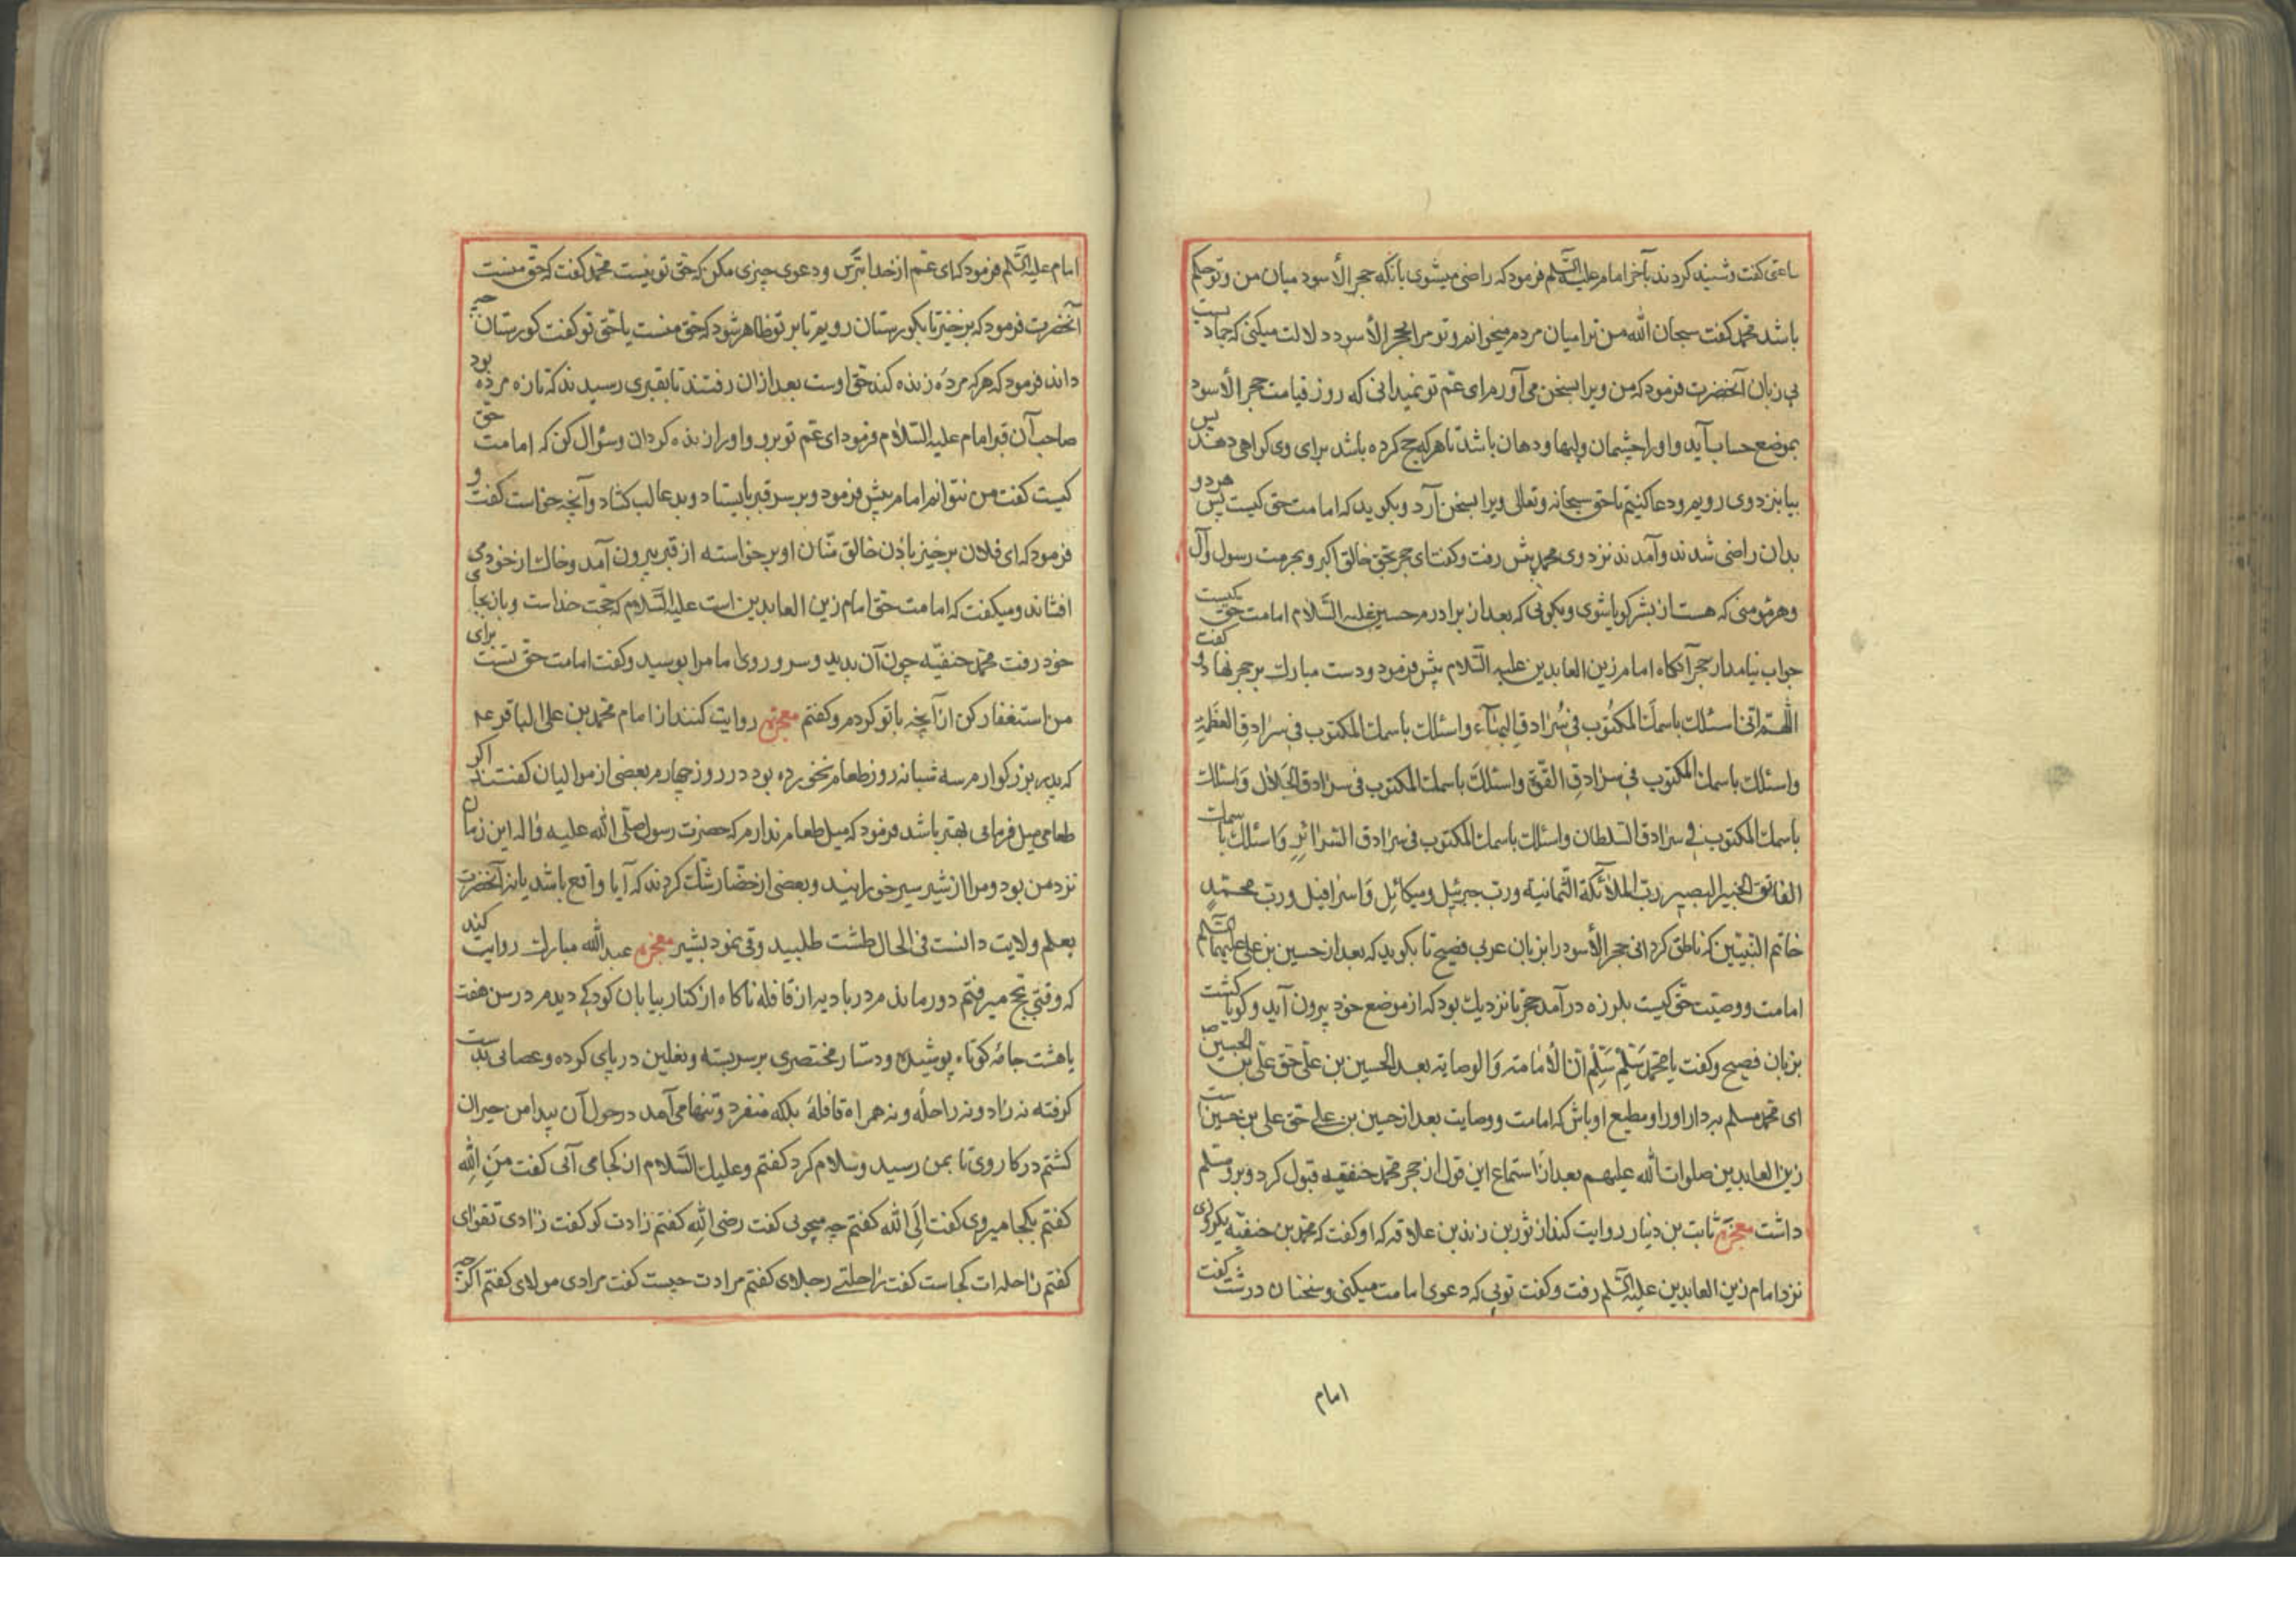 ساعتی کفت وشنید کردند بآخر امام علیه السلم فرمود که راضی میشوی بانکه حجر الأسود میان من وتو حکم
باشد محمد کفت سبحان الله من ترا میان مردم میخوانم وتو مرا بحجر الأسود دلالت میکنی که جمادیست
بی زبان آنحضرت فرمود که من ویرا بسخن می آورم ای عم تو نمیدانی که روز قیامت حجر الأسود
بموضع حساب آید واورا چشمان ولبها ودهان باشد تا هرکه حج کرده باشد برای وی کواهی دهند پس
بیا بنزد وی رویم ودعا کنیم تا حق سبحانه وتعالی ویرا بسخن آرد وبکوید که امامت حق کیست پس هر دو
بدان راضی شدند وآمدند نزد وی محمد پیش رفت وکفت ای حجر بحق خالق اکبر وبحرمت رسول وآل
وهر مؤمنی که هست از بشر کویا شوی وبکویی که بعد از برادرم حسین علیه السلام امامت حق کیست
جواب نیامد از حجر آنکاه امام زین العابدین علیه السلام پیش فرمود ودست مبارک بر حجر نهاد وکفت
اللهم انی اسئلک باسمک المکتوب فی سرادق البهآء واسئلک باسمک المکتوب فی سرادق العظمة
واسئلک باسمک المکتوب فی سرادق القوة واسئلک باسمک المکتوب فی سرادق الجلال واسئلک
باسمک المکتوب فی سرادق السلطان واسئلک باسمک المکتوب فی سرادق السرائر واسئلک باسمک
الفائق الخبیر البصیر رب الملائکة الثمانیة ورب جبرئیل ومیکائل واسرافیل ورب محمد
خاتم النبیین که ناطق کردانی حجر الأسود را بزبان عربی فصیح تا بکوید که بعد از حسین بن علی علیهما السلم
امامت ووصیت حق کیست بلرزه درآمد حجر تا نزدیک بود که از موضع خود بیرون آید وکویا کشت
بزبان فصیح وکفت یا محمد سلم سلم ان الأمامة والوصایة بعد الحسین بن علی حق علی بن الحسین
ای محمد مسلم بردار اورا ومطیع او باش که امامت ووصایت بعد از حسین بن علی حق علی بن حسین است
زین العابدین صلوات الله علیهم بعد از استماع این قول از حجر محمد حنفیه قبول کرد وبرو مسلم
داشت معجزه ثابت بن دینار روایت کند از ثور بن علاقه که او کفت که محمد بن حنفیه یکروزی
نزد امام زین العابدین علیه السلم رفت وکفت تویی که دعوی امامت میکنی وسخنان درشت کفت
امام
امام علیه السلم فرمود که ای عم از خدا بترس ودعوی چیزی مکن که حق تو نیست محمد کفت که حق منست
آنحضرت فرمود که برخیز تا بکورستان رویم تا بر تو ظاهر شود که حق منست یا حق تو کفت کورستان چه
داند فرمود که هرکه مرده زنده کند حق اوست بعد از ان رفتند تا بقبری رسیدند که تازه مرده بود
صاحب آن قبر امام علیه السلام فرمود ای عم تو برو واورا زنده کردان وسؤال کن که امامت حق
کیست کفت من نتوانم امام پیش فرمود وبر سر قبر بایستاد وبدعا لب کشاد وآنچه خواست کفت و
فرمود که ای فلان برخیز باذن خالق منان او برخواسته از قبر بیرون آمد وخاک از خود می
افشاند ومیکفت که امامت حق امام زین العابدین است علیه السلام که حجت خداست وبازبجای
خود رفت محمد حنفیه چون آن بدید وسر وروی امام را بوسید وکفت امامت حق تست برای
من استغفار کن از آنچه با تو کردم وکفتم معجزه روایت کنند از امام محمد بن علی الباقر ع
که پدر بزرکوارم سه شبانه روز طعام نخورده بود در روز چهارم بعضی از موالیان کفتند اکر
طعامی میل فرمائی بهتر باشد فرمود که میل طعام ندارم که حضرت رسول صلی الله علیه واله این زمان
نزد من بود ومرا از شیر سیر خورانید وبعضی از حضار شک کردند که آیا واقع باشد یا نه آنحضرت
بعلم ولایت دانست فی الحال طشت طلبید وقی نمود بشیر معجزه عبد الله مبارک روایت کند
که وقتی بحج میرفتم دور ماندم در بادیه از قافله ناکاه از کنار بیابان کودکی دیدم در سن هفت
یا هشت جامهٔ کوتاه پوشیده ودستار مختصری بر سر بسته ونعلین در پای کرده وعصائی بدست
کرفته نه زاد ونه راحله ونه همراه قافلهٔ بلکه منفرد وتنها می آمد در حول آن بیدا من حیران
کشتم در کار وی تا بمن رسید وسلام کرد کفتم وعلیک السلام از کجا می آئی کفت من الله
کفتم بکجا میروی کفت الی الله کفتم چه میجویی کفت رضی الله کفتم زادت کو کفت زادی تقوای
کفتم راحله ات کجاست کفت راحلتی رجلای کفتم مرادت چیست کفت مرادی مولای کفتم اکر چه